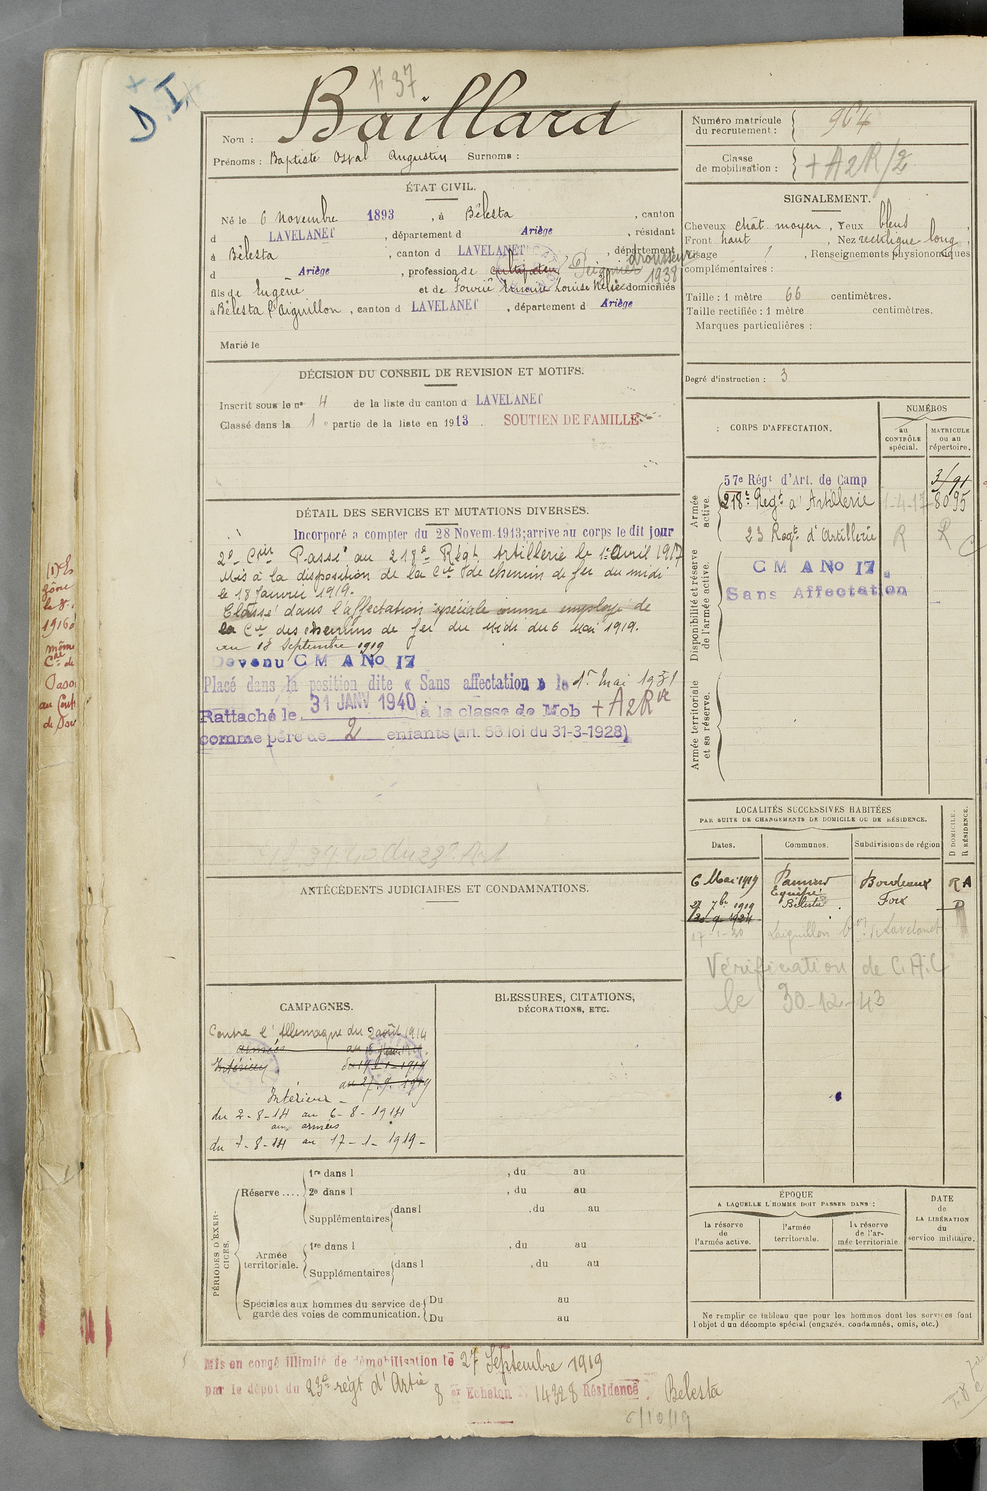 D. I.
F 37
Nom : Baillard
Prénoms : Baptiste Osval Augustin Surnoms :
Numéro matricule du recrutement : 964
Classe de mobilisation : + A2R/2
ÉTAT CIVIL.
Né le 6 Novembre 1893, à Bélesta, canton
d LAVELANET, département d Ariège, résidant
à Bélesta, canton d LAVELANET, département
d Ariège, profession de cultivateur Peigneur drousseur 1938
fils de Eugène et de Ernanie Louise domiciliés
à Bélesta l'Aiguillon, canton d LAVELANET, département d Ariège
Marié le
SIGNALEMENT.
Cheveux chât. moyen, Yeux bleus
Front haut, Nez rectiligne long,
Visage, Renseignements physionomiques
complémentaires :
Taille : 1 mètre 66 centimètres.
Taille rectifiée : 1 mètre centimètres.
Marques particulières :
Degré d'instruction : 3
DÉCISION DU CONSEIL DE REVISION ET MOTIFS.
Inscrit sous le nº 4 de la liste du canton d LAVELANET
Classé dans la 1e partie de la liste en 1913. SOUTIEN DE FAMILLE
DÉTAIL DES SERVICES ET MUTATIONS DIVERSES.
Incorporé a compter du 28 Novem. 1913; arrive au corps le dit jour
2e Cnr Passé au 218e Régt Artillerie le 1er Avril 1917
Mis à la disposition de la Cie de chemin de fer du midi
le 18 Janvier 1919.
Classé dans l'affectation spéciale comme employé de
la Cie des chemins de fer du Midi du 6 Mai 1919.
au 18 Septembre 1919
Devenu C M A No 17
Placé dans la position dite « Sans affectation » le 1er Mai 1931
Rattaché le 31 JANV 1940 à la classe de Mob + A2R
comme père de 2 enfants (art. 58 loi du 31-3-1928)
CORPS D'AFFECTATION.
NUMÉROS
au CONTRÔLE spécial.
MATRICULE ou au répertoire.
Armée active.
57e Régt d'Art. de Camp
218e Régt d'Artillerie 1-4-17 8095
23 Régt d'Artillerie R R
Disponibilité et réserve de l'armée active.
C M A No 17.
Sans Affectation
Armée territoriale et sa réserve.
LOCALITÉS SUCCESSIVES HABITÉES
PAR SUITE DE CHANGEMENTS DE DOMICILE OU DE RÉSIDENCE.
Dates. Communes. Subdivisions de région D DOMICILE. R RÉSIDENCE.
6 Mai 1919 Bordeaux R A
27 7bre 1919 Bélesta Foix D
30-9-1934
Laiguillon Lavelanet
Vérification de C.A.C
le 30-12-43
ANTÉCÉDENTS JUDICIAIRES ET CONDAMNATIONS.
CAMPAGNES.
Contre l'Allemagne du 2 août 1914
Intérieur du 19-1-1919
au 27.9.1919
Intérieur -
du 2-8-14 au 6-8-1914
aux armées
du 7-8-14 au 17-1-1919-
BLESSURES, CITATIONS,
DÉCORATIONS, ETC.
PÉRIODES D'EXERCICES.
Réserve....
1re dans l , du au
2e dans l , du au
Supplémentaires dans l , du au
Armée territoriale.
1re dans l , du au
Supplémentaires dans l , du au
Spéciales aux hommes du service de garde des voies de communication.
Du au
Du au
ÉPOQUE
A LAQUELLE L'HOMME DOIT PASSER DANS :
la réserve de l'armée active.
l'armée territoriale.
la réserve de l'armée territoriale
DATE de LA LIBÉRATION du service militaire.
Ne remplir ce tableau que pour les hommes dont les services font
l'objet d'un décompte spécial (engagés, condamnés, omis, etc.)
Mis en congé illimité de démobilisation le 27 Septembre 1919
par le dépôt du 23e régt d'Artie 8 er Echelon 14328 Résidence. Bélesta
6/10/19